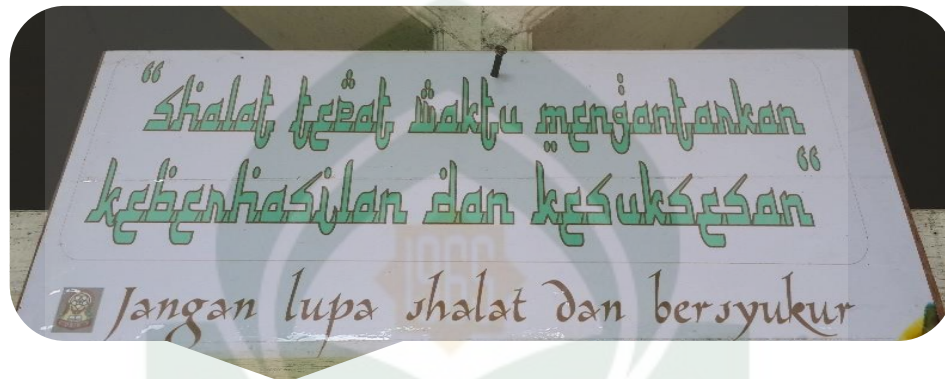 “Shalat tepat waktu mengantarkan
keberhasilan dan kesuksesan“
Jangan lupa shalat dan bersyukur
1960